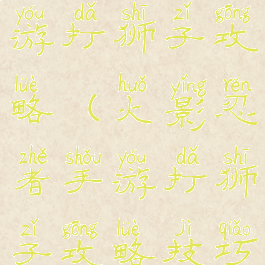 yóu dǎ shī zǐ gōng
游打狮子攻
lüè huǒ yǐng rěn
略(火影忍
zhě shǒu yóu dǎ shī
者手游打狮
zǐ gōng lüè jì qiǎo
子攻略技巧